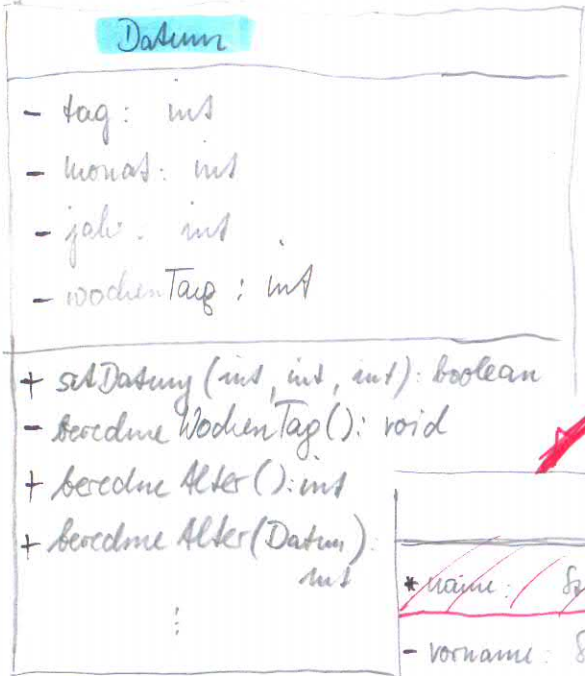 Datum
- tag: int
- monat: int
- jahr: int
- wochenTag: int
+ setDatum(int, int, int): boolean
- berechneWochenTag(): void
+ berechneAlter(): int
+ berechneAlter(Datum):
int
⋮
* name:
- vorname: